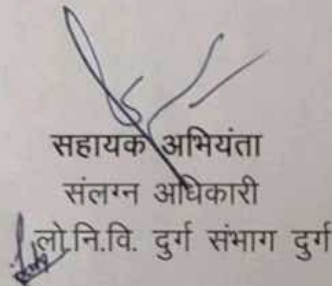 सहायक अभियंता
संलग्न अधिकारी
लो.नि.वि. दुर्ग संभाग दुर्ग